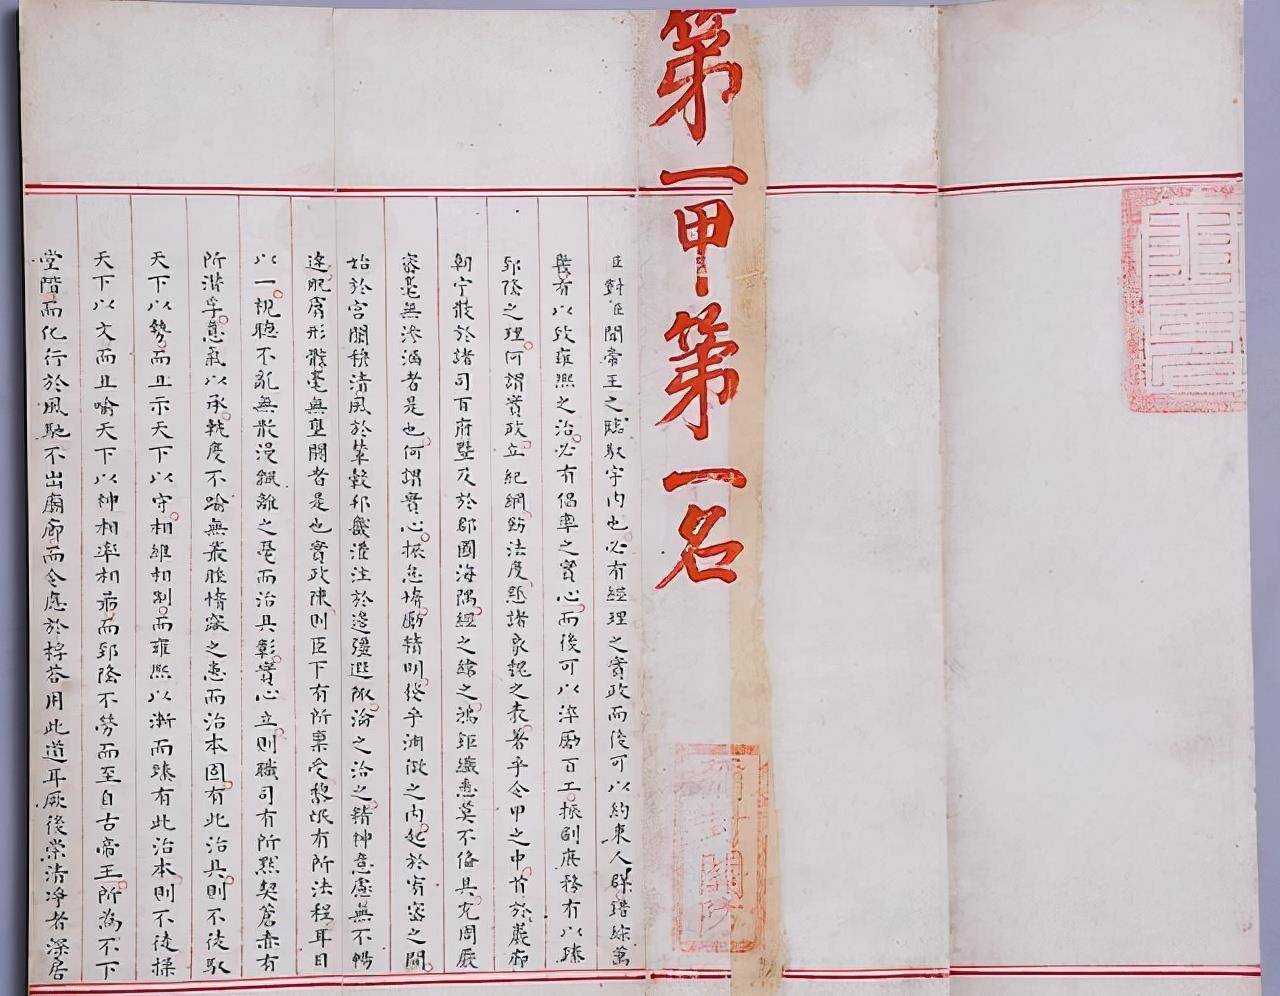 第一甲第一名
彌封關防
臣對臣聞帝王之臨馭宇內也必有經理之實政而後可以約束人群錯綜萬
幾有以致雍熙之治必有倡率之實心而後可以淬勵百工振刷庶務有以臻
郅隆之理何謂實政立紀綱飭法度懸諸象魏之表著乎令甲之中首於巖廊
朝宁散於諸司百府暨及於郡國海隅經之緯之鴻鉅纖悉莫不備具充周嚴
密毫無滲漏者是也何謂實心振怠惰勵精明發乎淵微之內起於宥密之間
始於宮闈穆清風於輦轂邦畿灌注於邊疆遐陬淪之洽之精神意慮無不暢
達肌膚形骸毫無壅閼者是也實政陳則臣下有所稟受黎氓有所法程耳目
以一視聽不亂無散漫飄離之憂而治具彰實心立則職司有所默契蒼赤有
所潛孚意氣以承軌度不踰無叢脞惰窳之患而治本固有此治具則不徒馭
天下以勢而且示天下以守相維相制而雍熙以漸而臻有此治本則不徒操
天下以文而且喻天下以神相率相勗而郅隆不勞而至自古帝王所為不下
堂階而化行於風馳不出廟廊而令應於桴荅用此道耳厥後崇清凈者深居